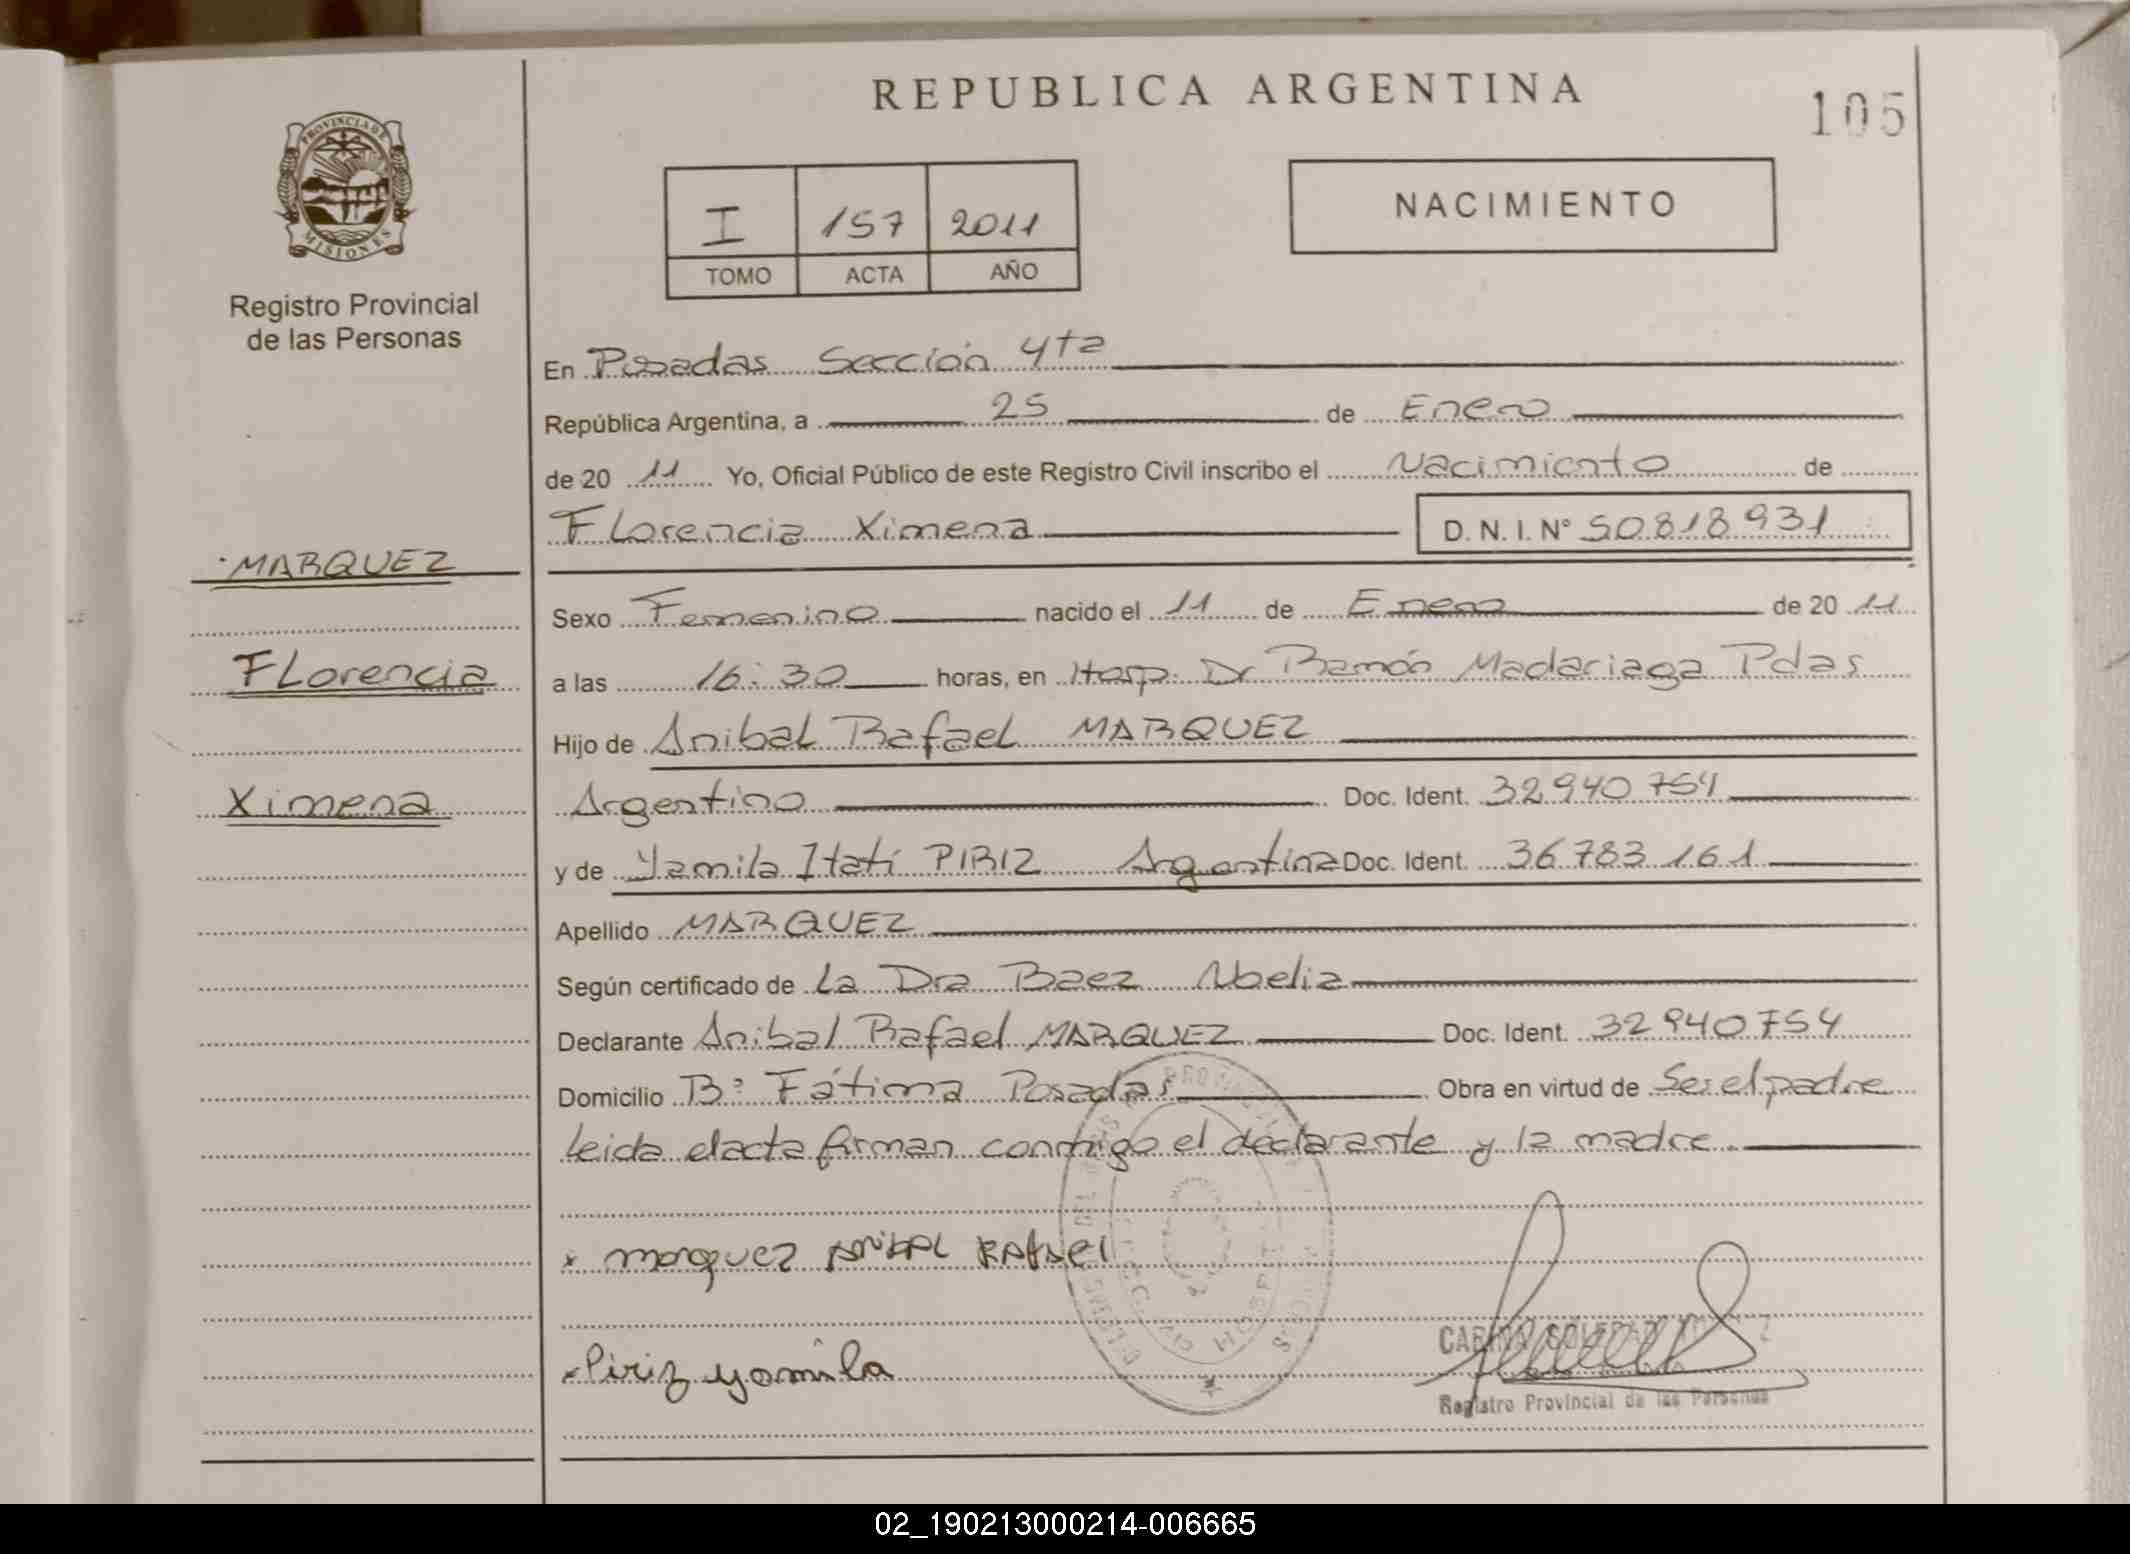 REPUBLICA ARGENTINA
105
PROVINCIA DE
MISIONES
Registro Provincial
de las Personas
I 157 2011
TOMO ACTA AÑO
NACIMIENTO
En Posadas Sección 4ta
República Argentina, a 25 de Enero
de 20 11 Yo, Oficial Público de este Registro Civil inscribo el Nacimiento de
Florencia Ximena D. N. I. N° 50818931
MARQUEZ
Florencia
Ximena
Sexo Femenino nacido el 11 de Enero de 20 11
a las 16:30 horas, en Hosp. Dr Ramón Madariaga Pdas
Hijo de Anibal Rafael MARQUEZ
Argentino Doc. Ident. 32940754
y de Yamila Itatí PIRIZ Argentina Doc. Ident. 36783161
Apellido MARQUEZ
Según certificado de La Dra Baez Nbelia
Declarante Anibal Rafael MARQUEZ Doc. Ident. 32940754
Domicilio B° Fátima Posadas Obra en virtud de Ser el padre
leida el acta firman conmigo el declarante y la madre
x marquez ANIBAL RAFAEl
x Piriz yamila
CARINA SOLEDAD
Registro Provincial de las Personas
02_190213000214-006665